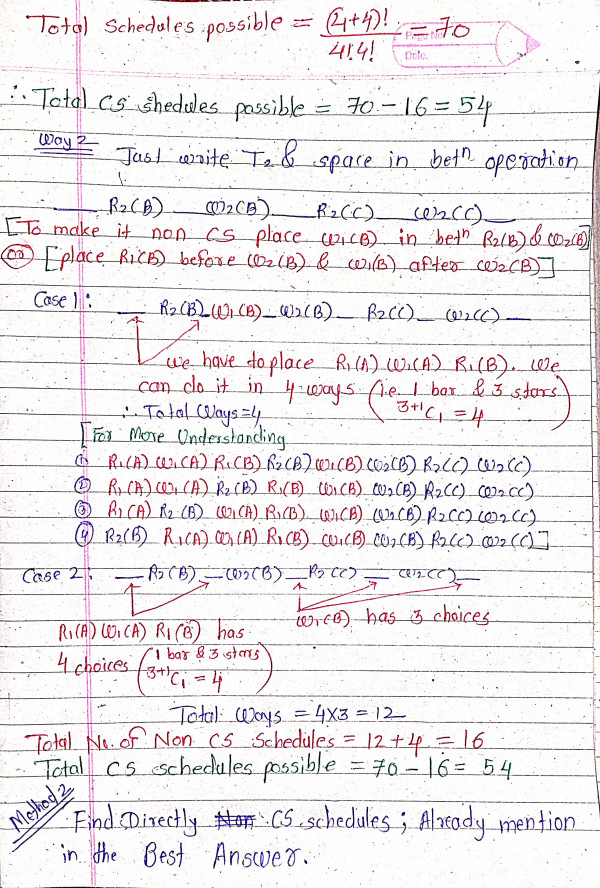 Total Schedules possible = (4+4)! / 4!4! = 70
Date.
∴ Total CS shedules possible = 70 - 16 = 54
Way 2 Just write T2 & space in betn operation
__ R2(B) __ W2(B) __ R2(C) __ W2(C) __
[To make it non CS place W1(B) in betn R2(B) & W2(B)]
(OR) [place R1(B) before W2(B) & W1(B) after W2(B)]
Case 1: __ R2(B) _ W1(B) _ W2(B) _ R2(C) _ W2(C) __
we have to place R1(A) W1(A) R1(B). We
can do it in 4 ways (i.e. 1 bar & 3 stars
3+1C1 = 4)
∴ Total Ways = 4
[For More Understanding
① R1(A) W1(A) R1(B) R2(B) W1(B) W2(B) R2(C) W2(C)
② R1(A) W1(A) R2(B) R1(B) W1(B) W2(B) R2(C) W2(C)
③ R1(A) R2(B) W1(A) R1(B) W1(B) W2(B) R2(C) W2(C)
④ R2(B) R1(A) W1(A) R1(B) W1(B) W2(B) R2(C) W2(C)]
Case 2: __ R2(B) __ W2(B) __ R2(C) __ W2(C) __
W1(B) has 3 choices
R1(A) W1(A) R1(B) has
4 choices (1 bar & 3 stars
3+1C1 = 4)
Total Ways = 4×3 = 12
Total No. of Non CS Schedules = 12 + 4 = 16
Total CS schedules possible = 70 - 16 = 54
Method 2 Find Directly Non CS schedules; Already mention
in the Best Answer.